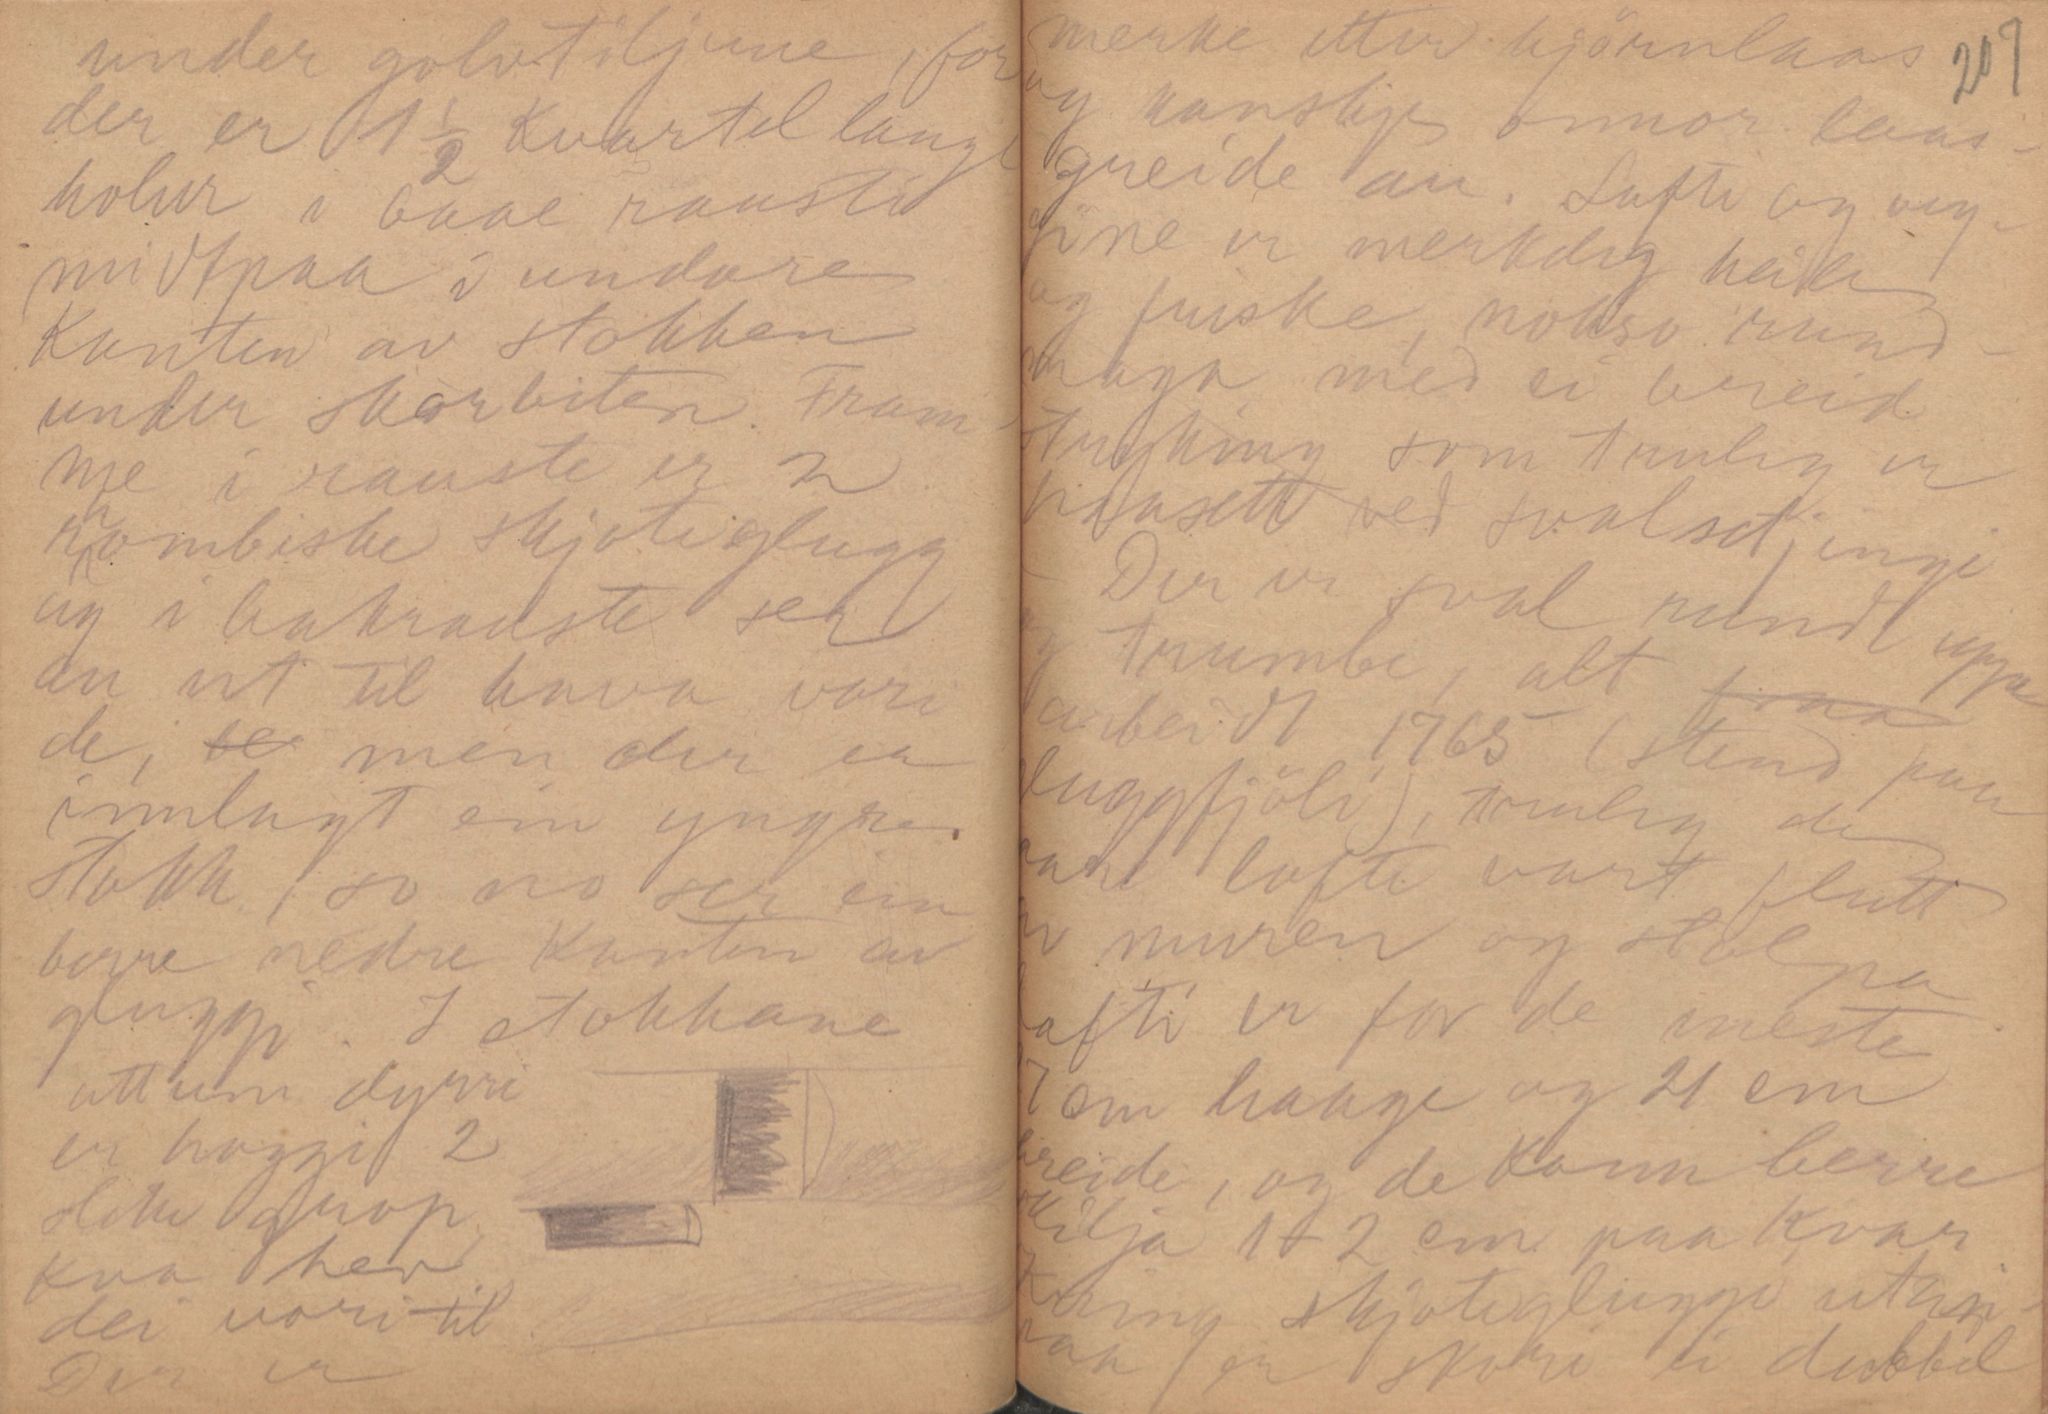 under golvtiljune, for
der er 1 1/2 kvartel lange
holur i baae rausti
midtpaa i undare
kanten av stokken
under skorbiten. Fram-
me i rauste er 2
rombiske skjoteglugg
og i bakrauste ser
an ut til hava vori
de, se men der er
innlagt ein yngre
stokk, so no ser ein
berre nedre kanten av
gluggj. I stokkane
attum dyrri
er hoggi 2
slike grop
kva hev
dei vori til
Der er
207
merke etter hjörnlaas
og kanskje onnor laas-
greide au. Lafti og veg-
gine er merkeleg heile
og friske, nokso rund-
maga, med ei breid
stryking som truleg er
paasett ved svalsetjingi
Der er sval rundt uppe
og trumbe, alt paa
arbeidt 1765 (stend paa
gluggfjöli), truleg daa
lofte vart flutt
muren og stolpa
Lafti er for de meste
cm haage og 21 cm
breide, og de kann berre
skilja 1-2 cm paa kvar
Kring skjoteglugge utan-
paa er skori ei dubbel